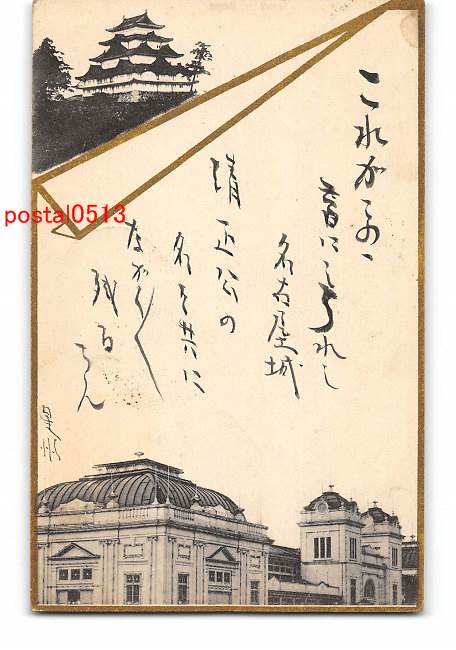 これがまあ
音にきこえれし
名古屋城
清正公の
名と共に
ながながく
残るらん
星州
postal0513